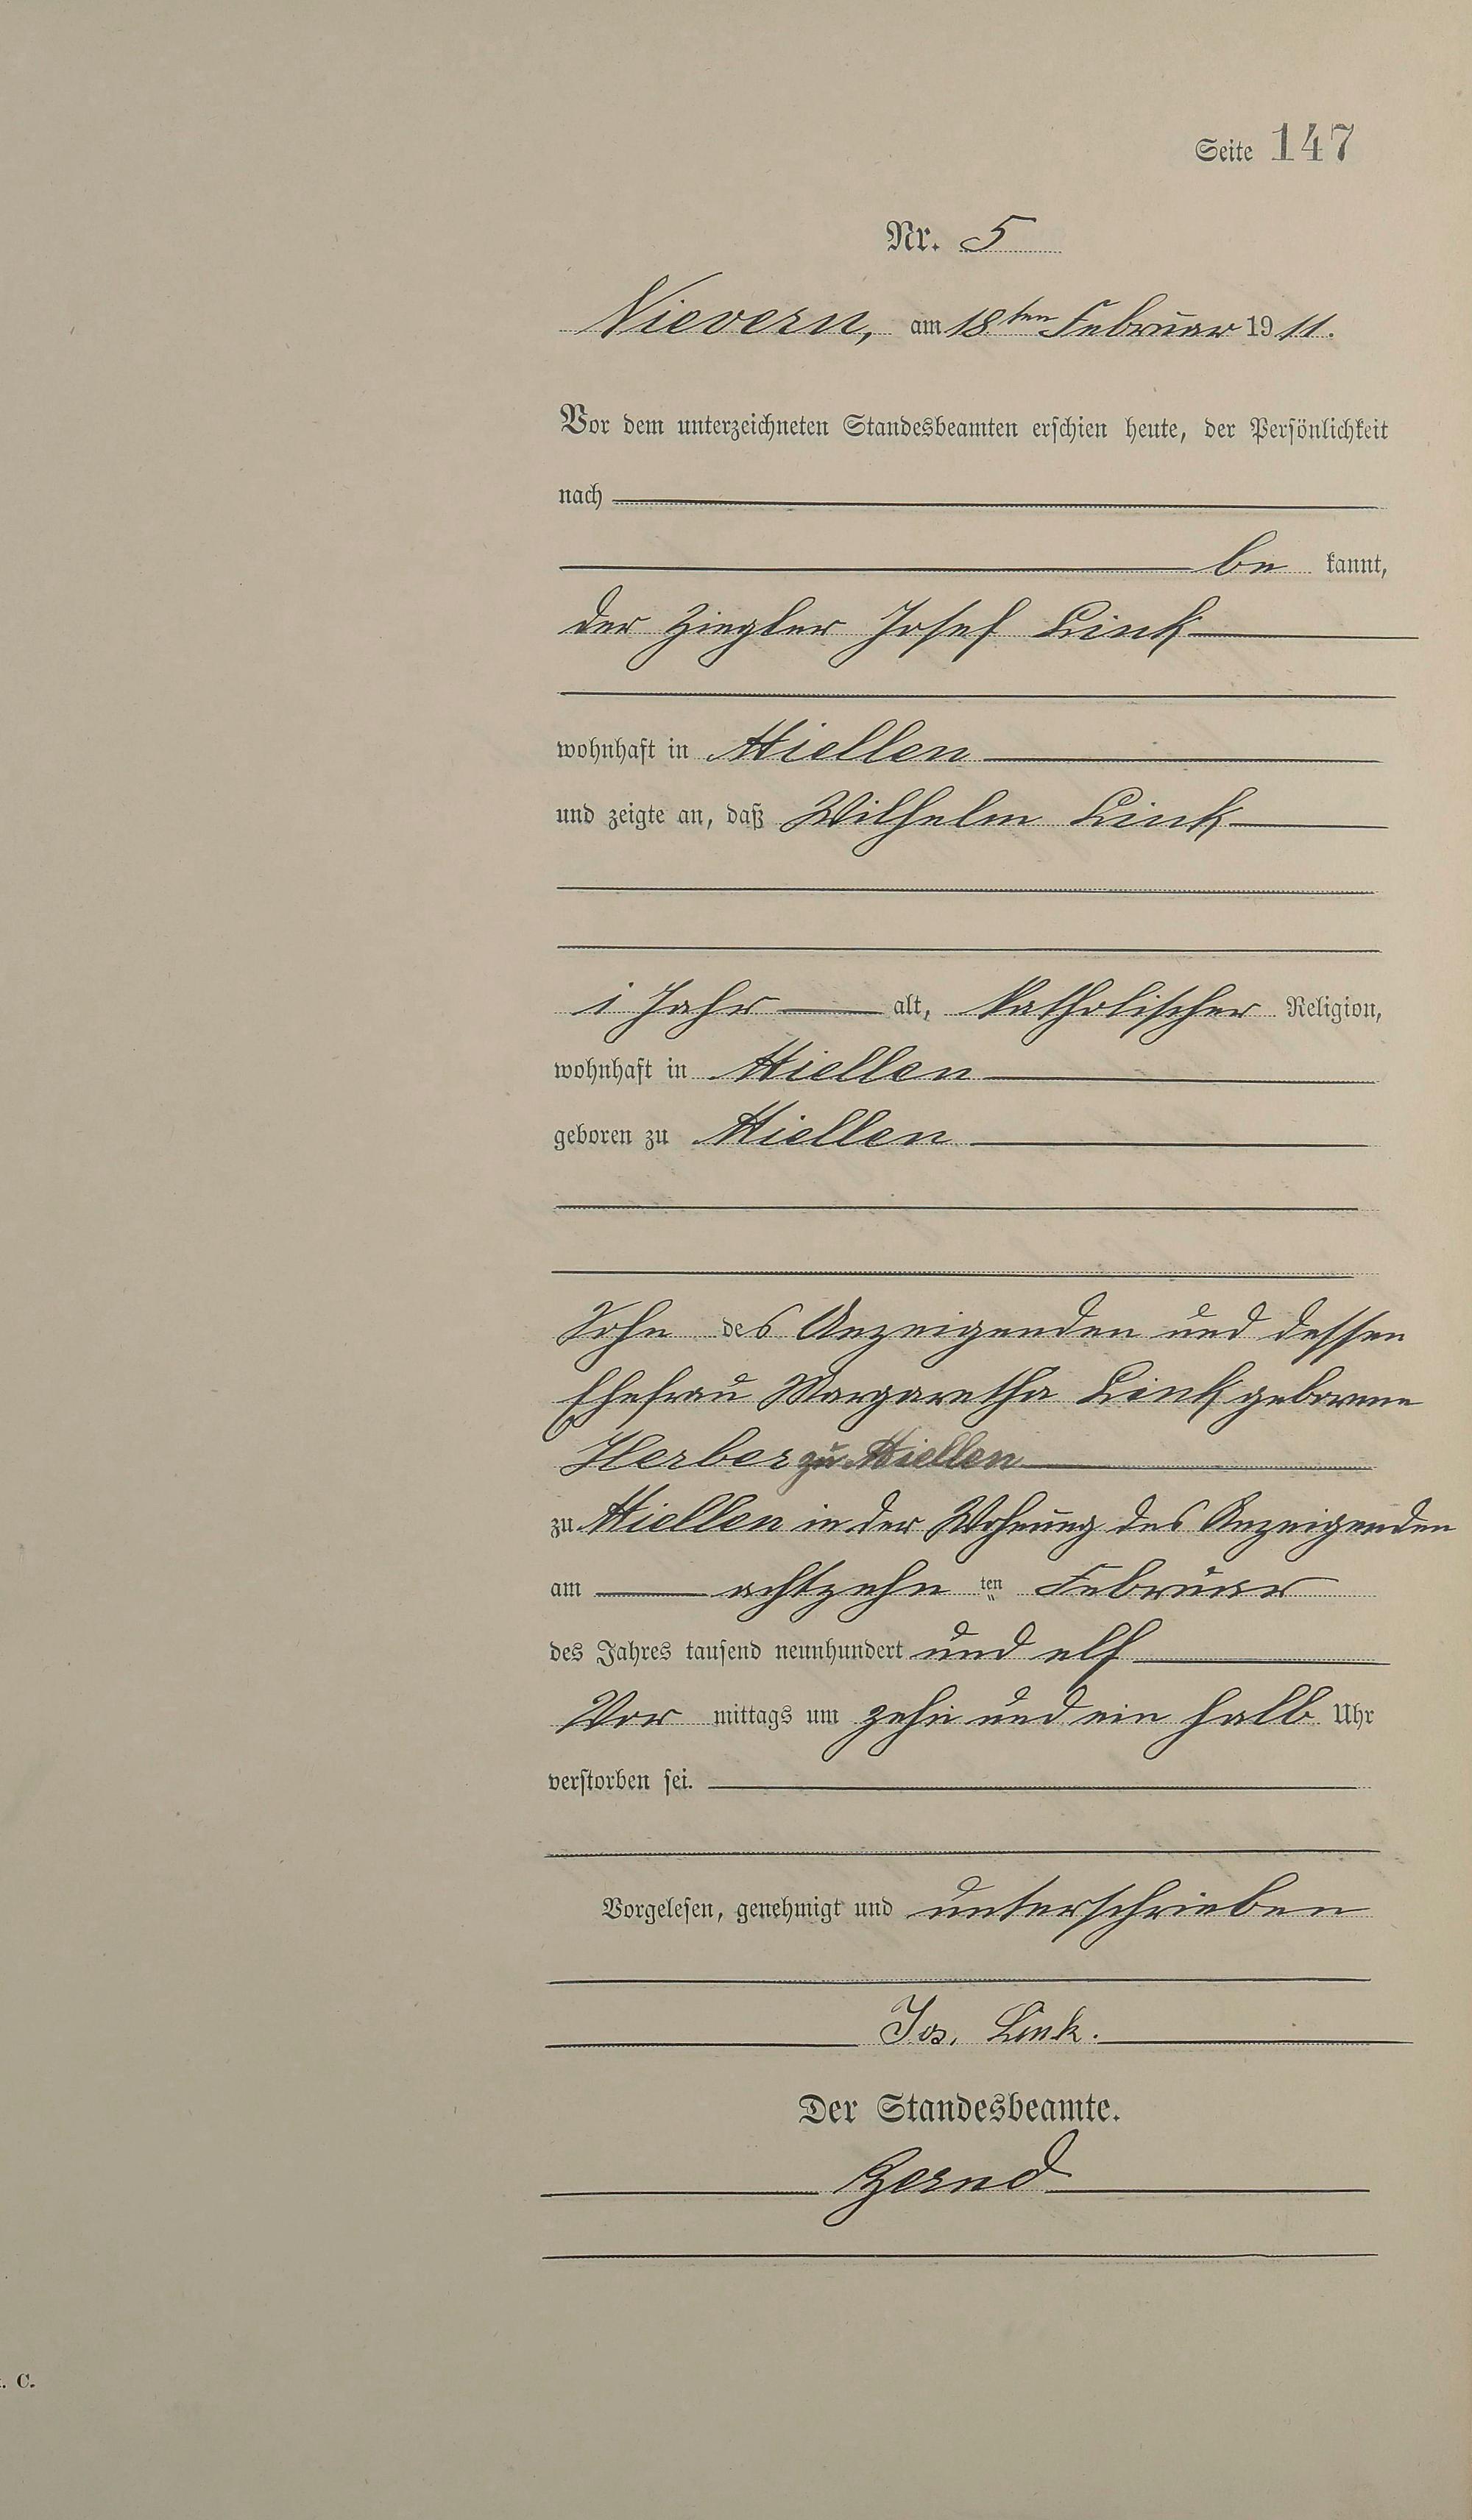 Seite 147
Nr. 5
Nievern, am 18ten Februar 1911.
Vor dem unterzeichneten Standesbeamten erschien heute, der Persönlichkeit
nach
be kannt,
der Ziegler Josef Link
wohnhaft in Miellen
und zeigte an, daß Wilhelm Link
1 Jahr alt, katholischer Religion,
wohnhaft in Miellen
geboren zu Miellen
Sohn des Anzeigenden und dessen
Ehefrau Margaretha Link geborene
Herber zu Miellen
zu Miellen in der Wohnung des Anzeigenden
am achtzehn ten Februar
des Jahres tausend neunhundert und elf
Vor mittags um zehn und ein halb Uhr
verstorben sei.
Vorgelesen, genehmigt und unterschrieben
Jos. Link.
Der Standesbeamte.
. C.